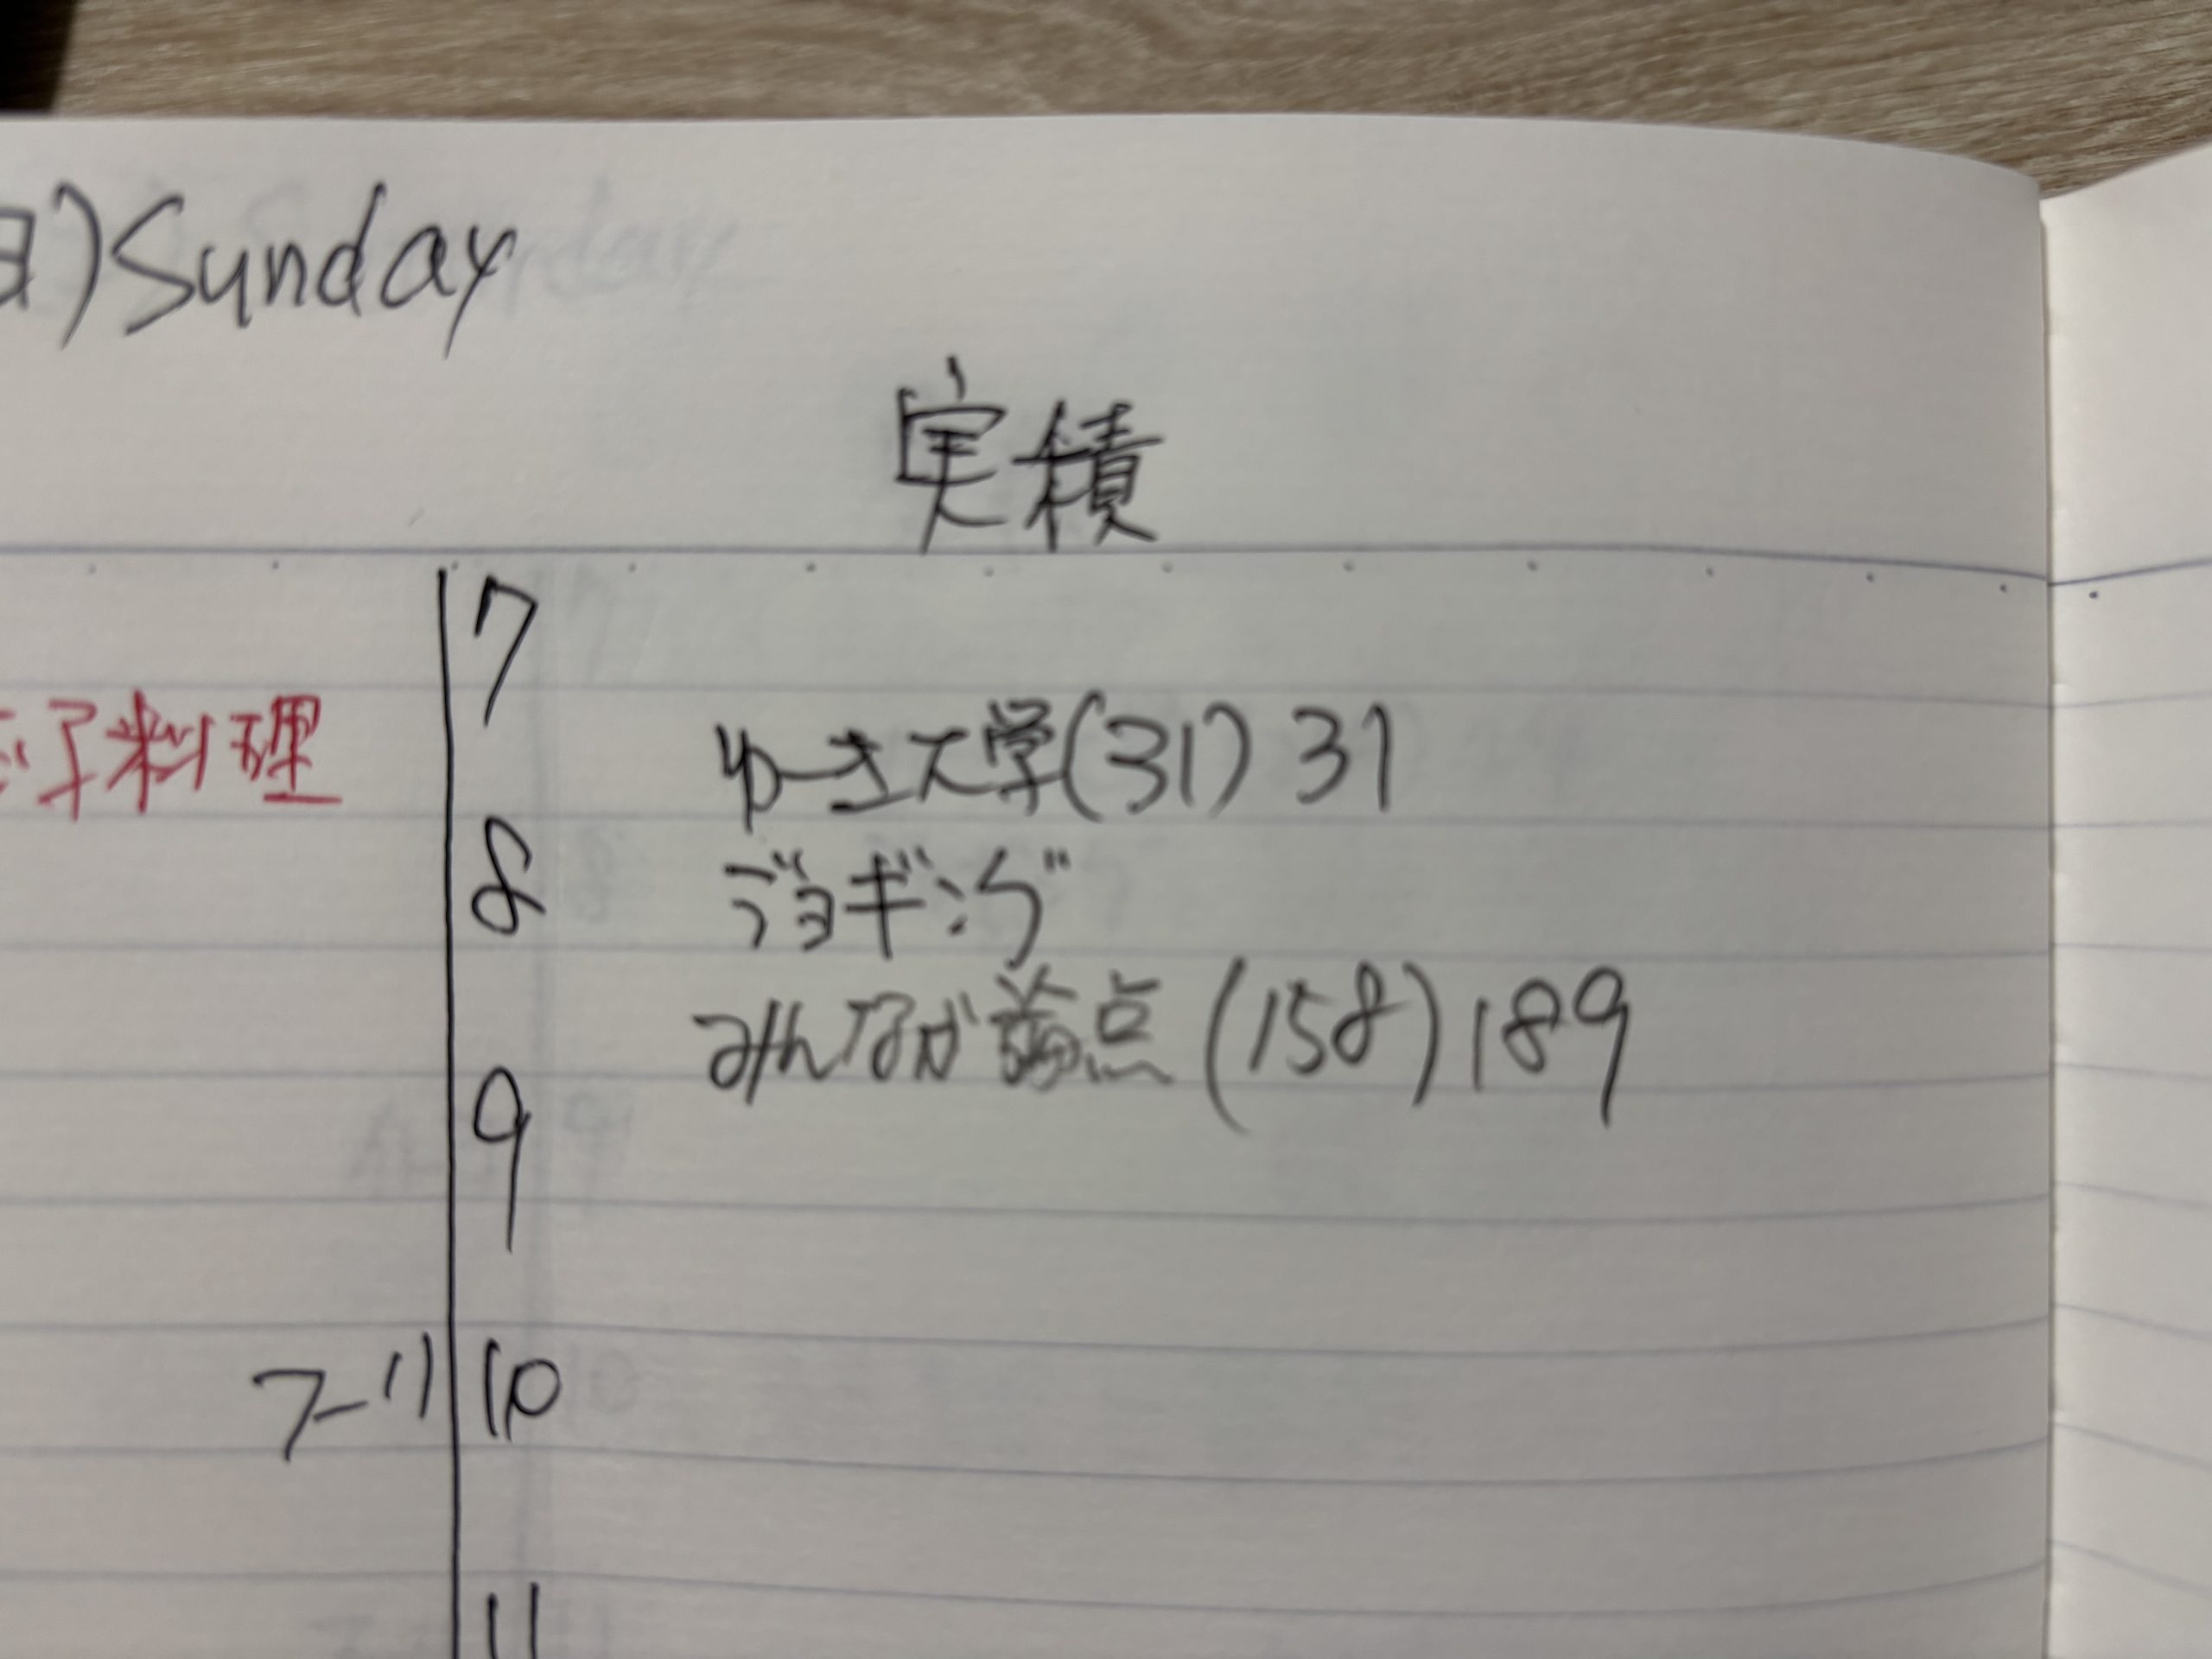 日)Sunday
実積
7
子料理
ゆーき大学(31) 31
8
ジョギング
みんなが論点(158)189
9
プール
10
11